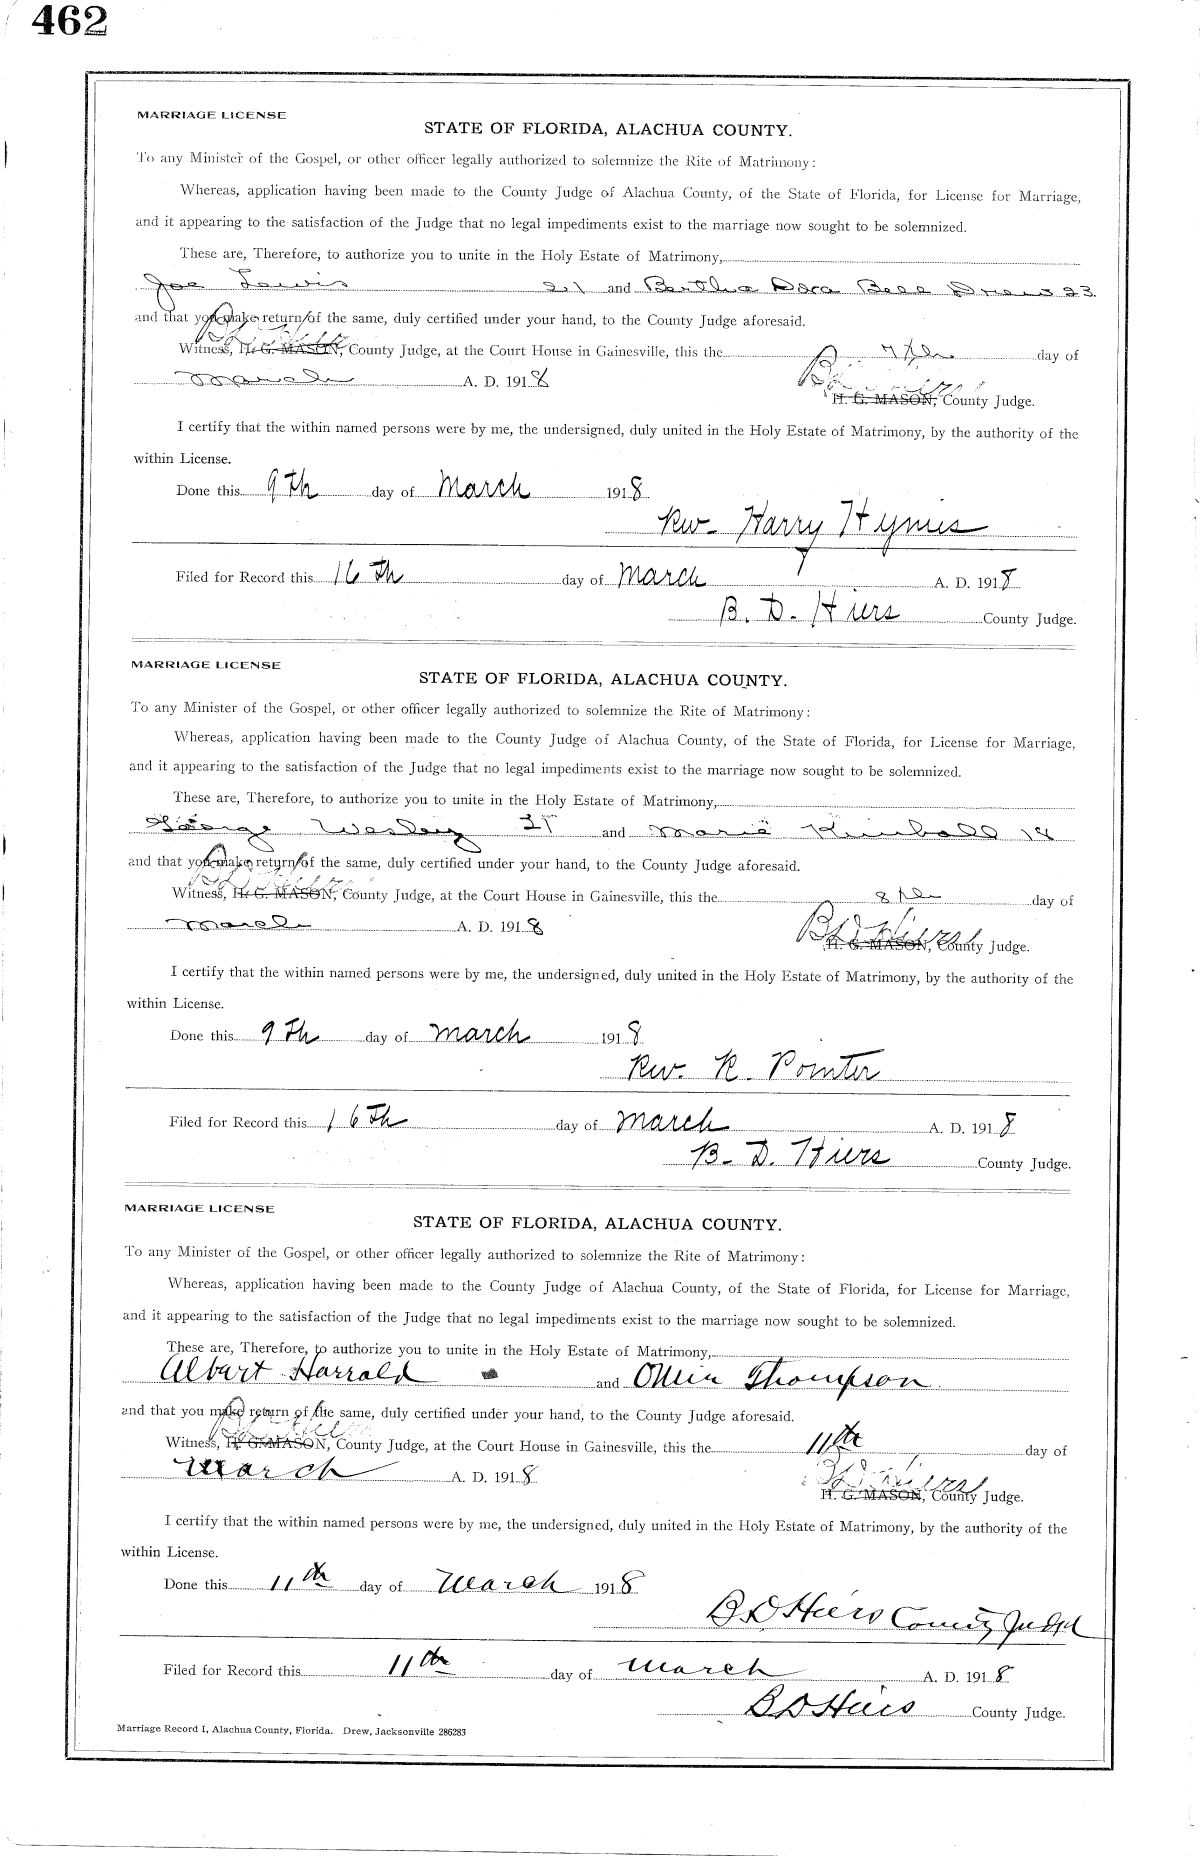 462
MARRIAGE LICENSE
STATE OF FLORIDA, ALACHUA COUNTY.
To any Minister of the Gospel, or other officer legally authorized to solemnize the Rite of Matrimony:
Whereas, application having been made to the County Judge of Alachua County, of the State of Florida, for License for Marriage,
and it appearing to the satisfaction of the Judge that no legal impediments exist to the marriage now sought to be solemnized.
These are, Therefore, to authorize you to unite in the Holy Estate of Matrimony,
Joe Lewis 21 and Bertha Dora Bell Drews 23
and that you make return of the same, duly certified under your hand, to the County Judge aforesaid.
B D Hiers
Witness, H. G. MASON, County Judge, at the Court House in Gainesville, this the 7th day of
March A. D. 1918
B D Hiers
H. G. MASON, County Judge.
I certify that the within named persons were by me, the undersigned, duly united in the Holy Estate of Matrimony, by the authority of the
within License.
Done this 9th day of March 1918
Rev. Harry Hymes
Filed for Record this 16th day of March A. D. 1918
B. D. Hiers County Judge.
MARRIAGE LICENSE
STATE OF FLORIDA, ALACHUA COUNTY.
To any Minister of the Gospel, or other officer legally authorized to solemnize the Rite of Matrimony:
Whereas, application having been made to the County Judge of Alachua County, of the State of Florida, for License for Marriage,
and it appearing to the satisfaction of the Judge that no legal impediments exist to the marriage now sought to be solemnized.
These are, Therefore, to authorize you to unite in the Holy Estate of Matrimony,
George Wesley 21 and Marie Kimball 18
and that you make return of the same, duly certified under your hand, to the County Judge aforesaid.
B D Hiers
Witness, H. G. MASON, County Judge, at the Court House in Gainesville, this the 8th day of
March A. D. 1918
B D Hiers
H. G. MASON, County Judge.
I certify that the within named persons were by me, the undersigned, duly united in the Holy Estate of Matrimony, by the authority of the
within License.
Done this 9th day of March 1918
Rev. R. Pointer
Filed for Record this 16th day of March A. D. 1918
B. D. Hiers County Judge.
MARRIAGE LICENSE
STATE OF FLORIDA, ALACHUA COUNTY.
To any Minister of the Gospel, or other officer legally authorized to solemnize the Rite of Matrimony:
Whereas, application having been made to the County Judge of Alachua County, of the State of Florida, for License for Marriage,
and it appearing to the satisfaction of the Judge that no legal impediments exist to the marriage now sought to be solemnized.
These are, Therefore, to authorize you to unite in the Holy Estate of Matrimony,
Albart Harrald and Ollein Thompson
and that you make return of the same, duly certified under your hand, to the County Judge aforesaid.
B D Hiers
Witness, H. G. MASON, County Judge, at the Court House in Gainesville, this the 11th day of
March A. D. 1918
B D Hiers
H. G. MASON, County Judge.
I certify that the within named persons were by me, the undersigned, duly united in the Holy Estate of Matrimony, by the authority of the
within License.
Done this 11th day of March 1918
B D Hiers County Judge
Filed for Record this 11th day of March A. D. 1918
B D Hiers County Judge.
Marriage Record I, Alachua County, Florida. Drew, Jacksonville 286283